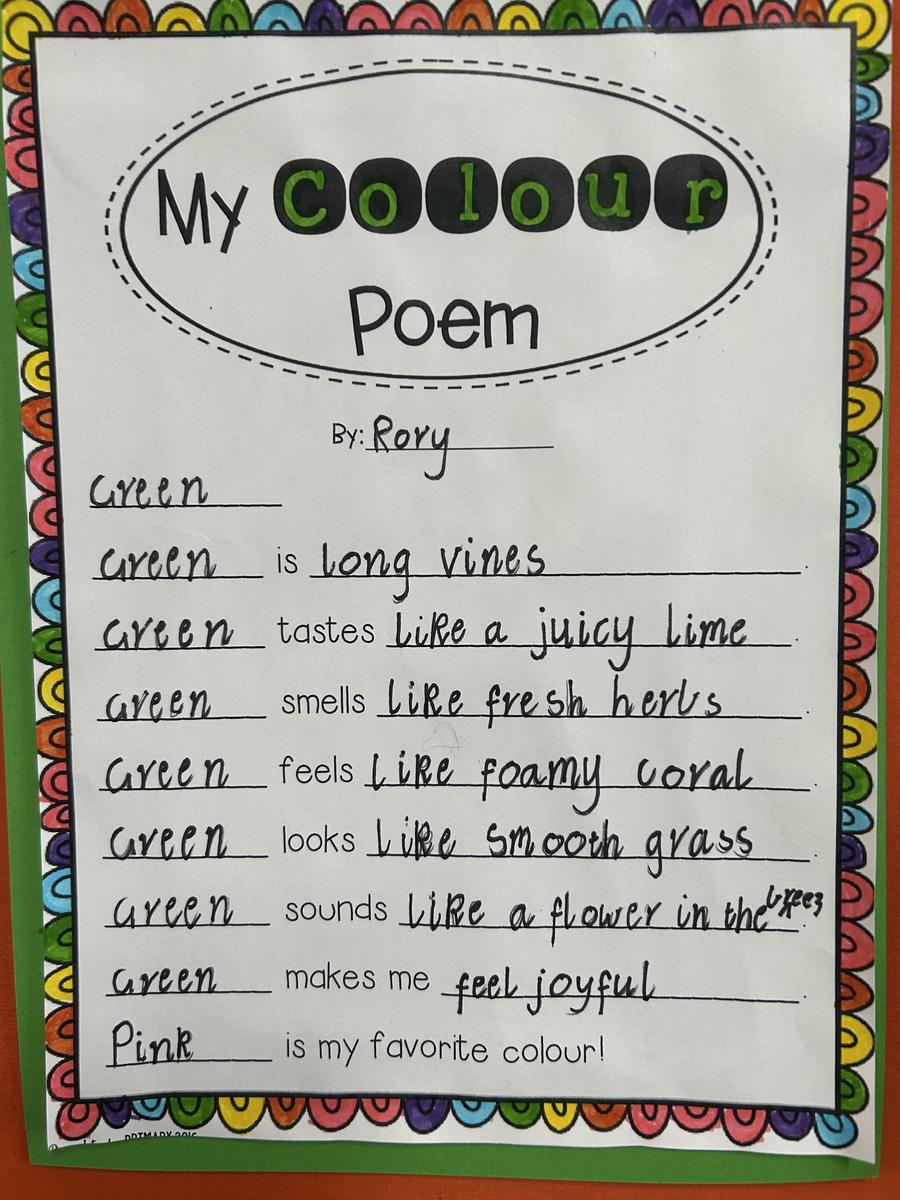 My Colour
Poem
By: Rory
Green
Green is long vines.
Green tastes like a juicy lime.
Green smells like fresh herbs.
Green feels like foamy coral.
Green looks like smooth grass.
Green sounds like a flower in the breez.
Green makes me feel joyful.
Pink is my favorite colour!
PRIMARY 2016